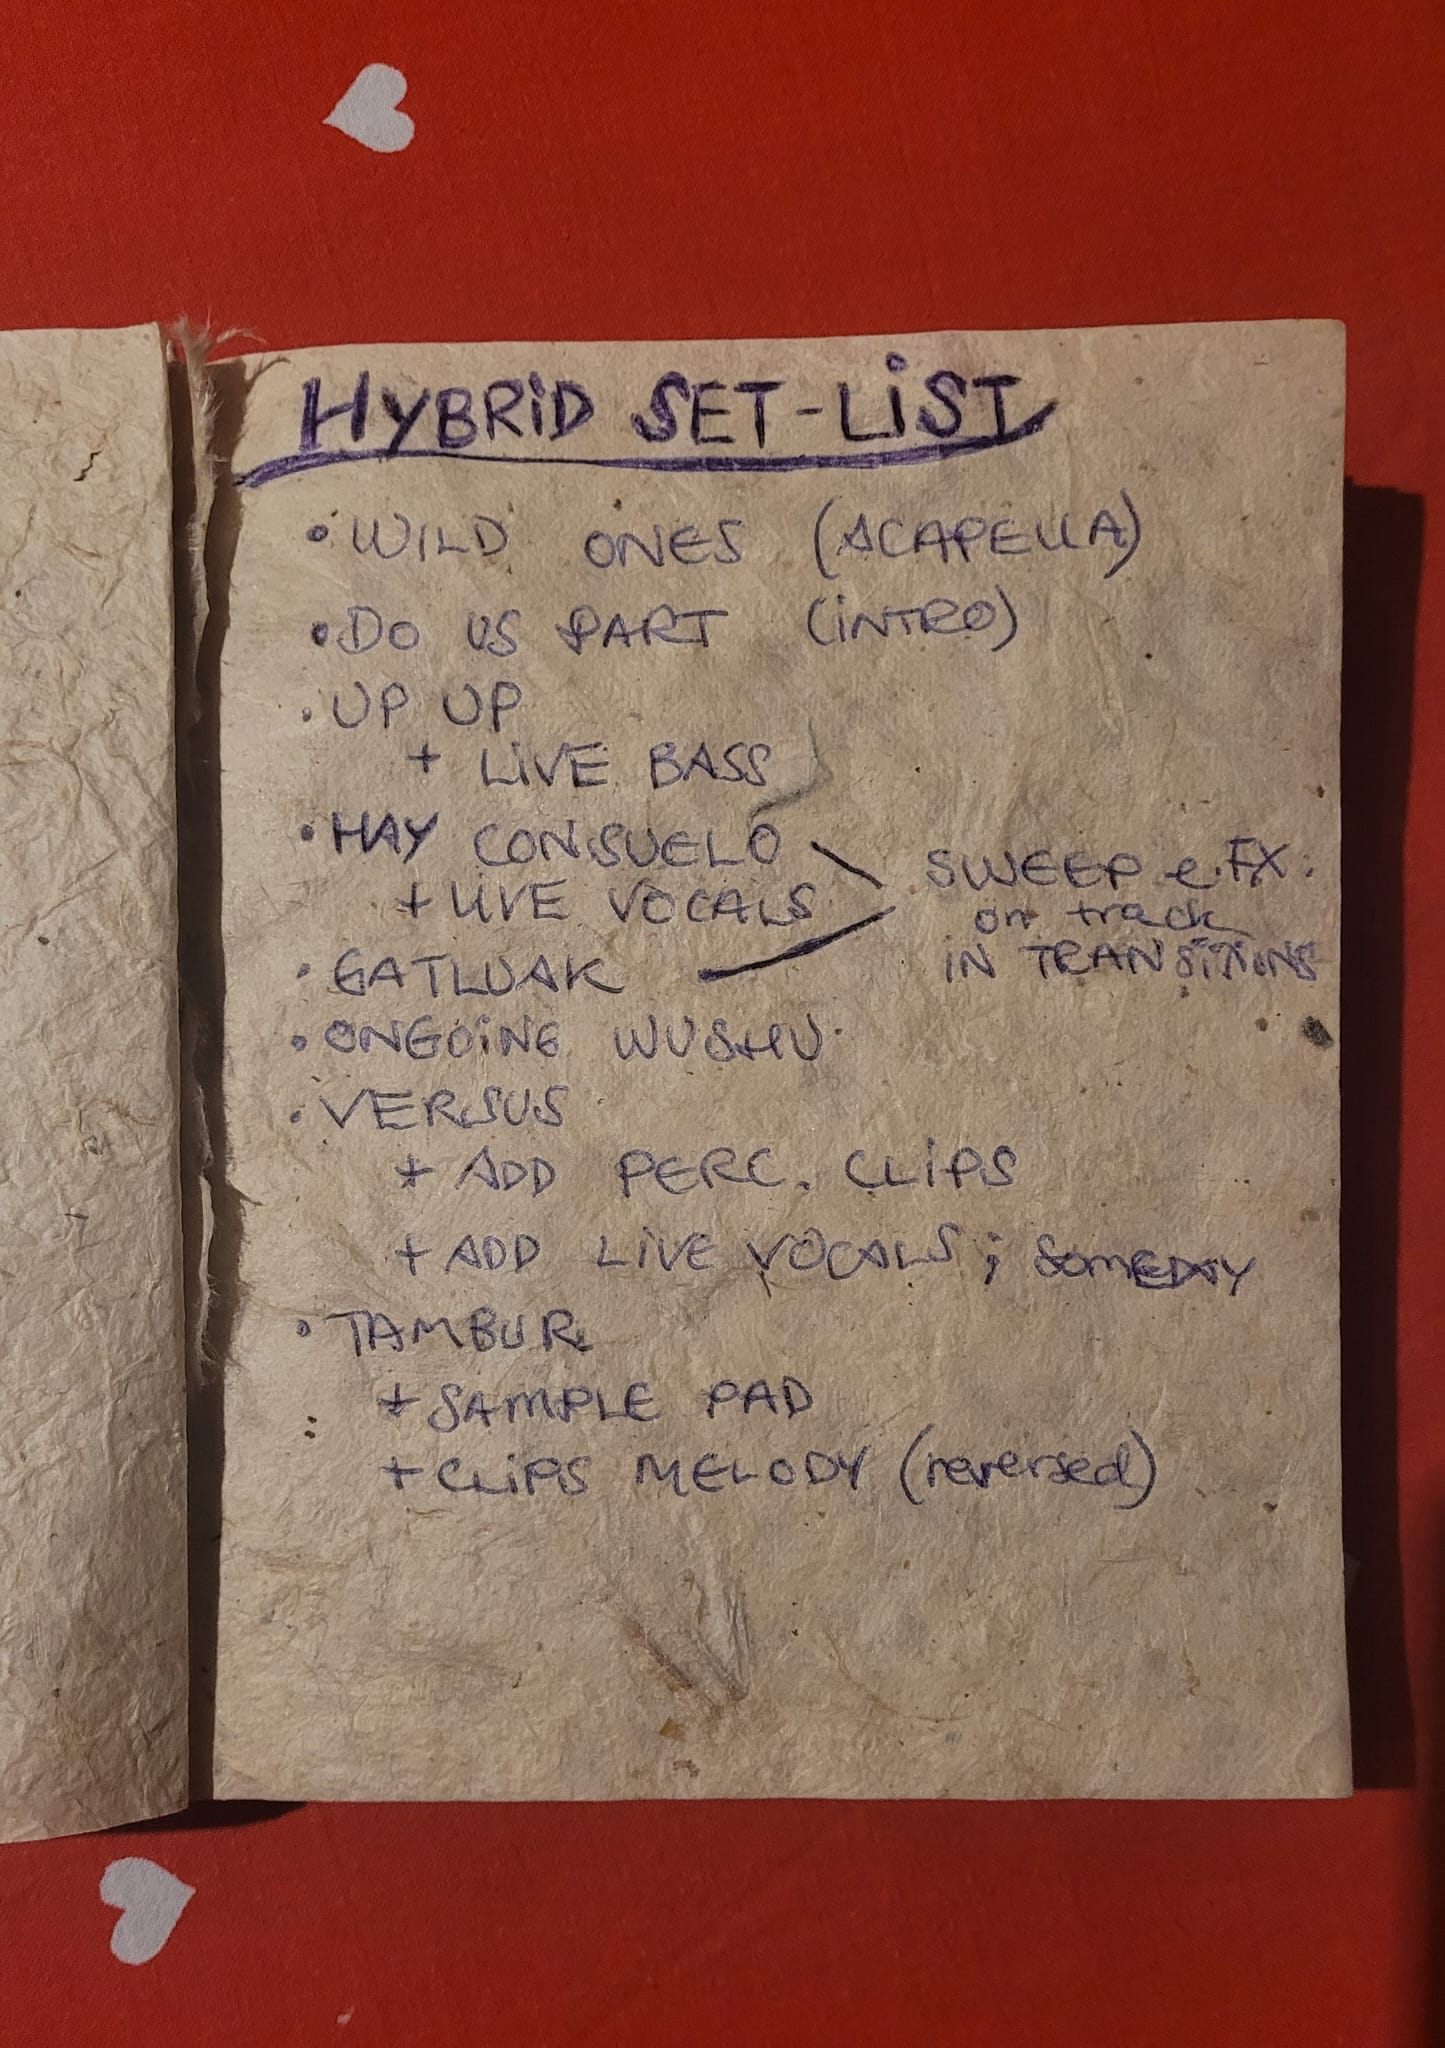 HYBRiD SET-LiST
• WILD ONES (ACAPELLA)
• DO US PART (iNTRO)
• UP UP
+ LiVE BASS
• HAY CONSUELO
+ LIVE VOCALS
SWEEP e.FX.
on track
iN TRANSiTiONS
• GATLUAK
• ONGOiNG WUSHU
• VERSUS
+ ADD PERC. CLiPS
+ ADD LiVE VOCALS ; SOMEDAY
• TAMBUR
+ SAMPLE PAD
+ CLiPS MELODY (reversed)